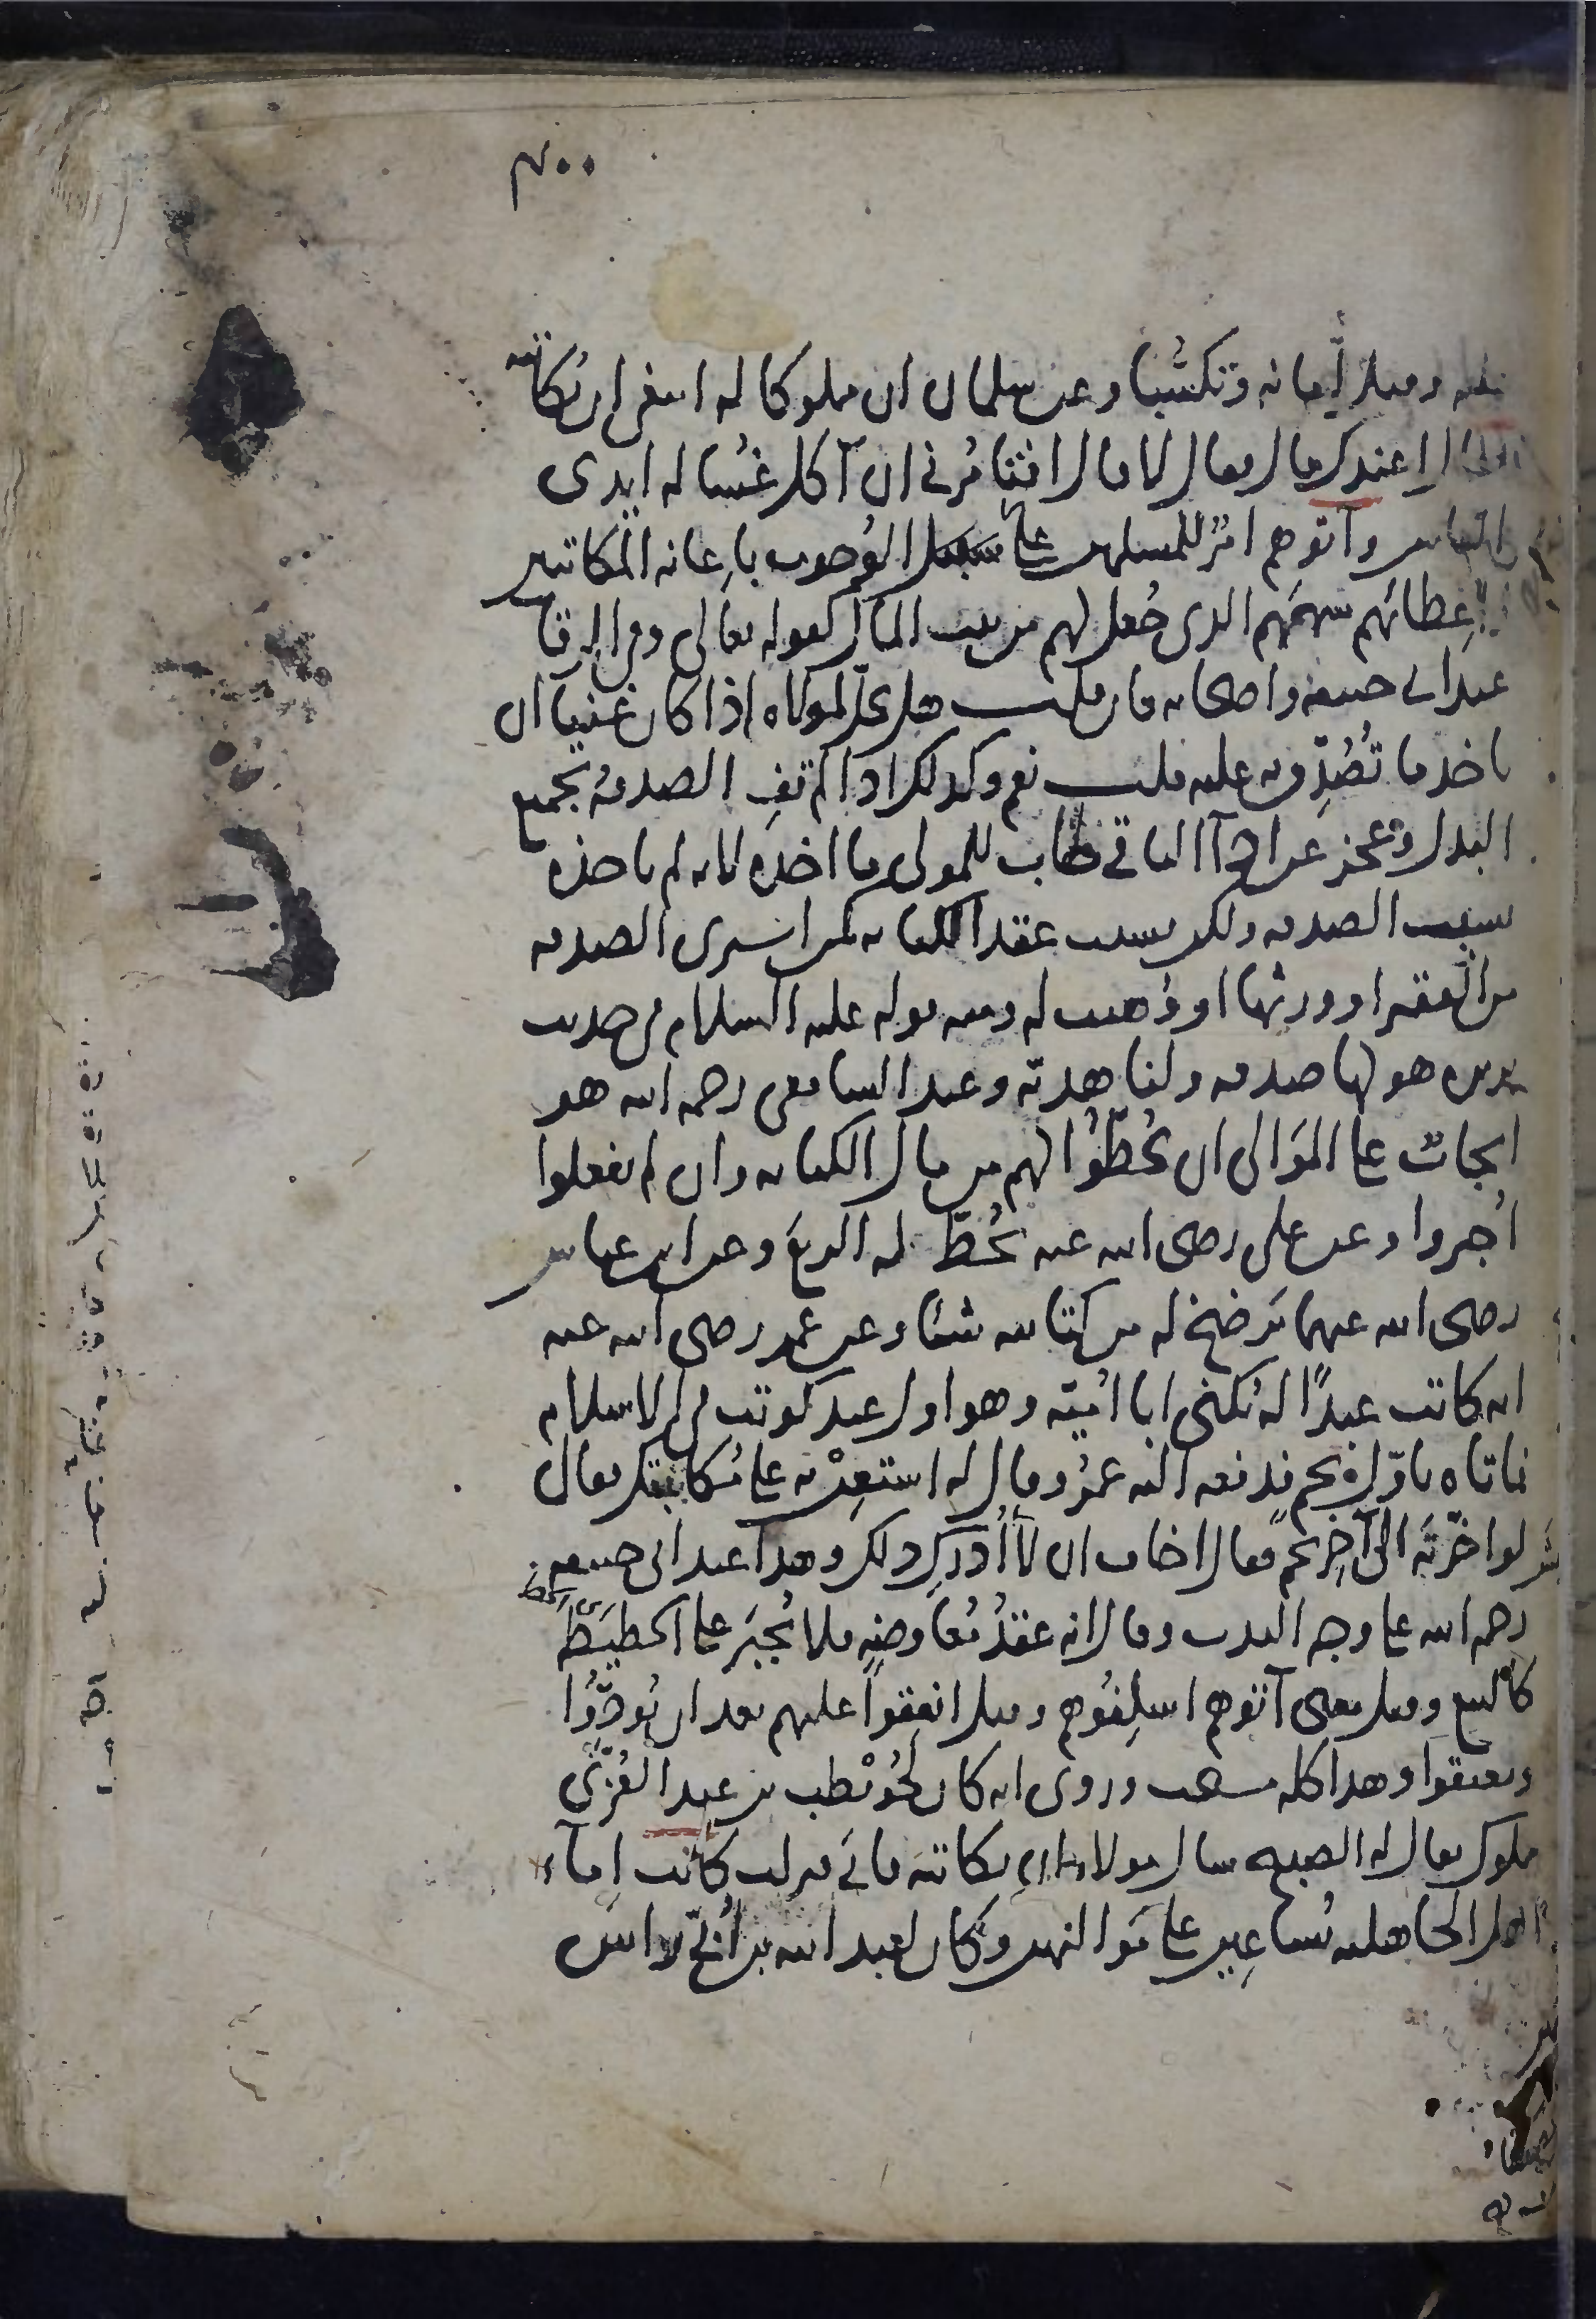 ٣٠٠
وقيل أمانة وتكسبا وعن سلمان ان مملوكا له ابتغى ان يكاتبه
فقال اعندك مال فقال لا قال افتامرني ان آكل غسالة ايدي
الناس وآتوهم امر للمسلمين على سبيل الوجوب باعانة المكاتبين
واعطائهم سهمهم الذي جعل لهم من بيت المال كقوله تعالى وفي الرقاب
عند ابي حنيفة واصحابه فان قلت هل يحل لمولاه اذا كان غنيا ان
ياخذ ما تصدق به عليه قلت نعم وكذلك اذا لم تف الصدقة بجميع
البدل وعجز عن اداء الباقي طاب للمولى ما اخذه لانه لم ياخذه
بسبب الصدقة ولكن بسبب عقد الكتابة كمن اشترى الصدقة
من الفقير او ورثها او وهبت له ومنه قوله عليه السلام في حديث
بريرة هو لها صدقة ولنا هدية وعند الشافعي رحمه الله هو
ايجاب على الموالى ان يحطوا لهم من مال الكتابة وان لم يفعلوا
اجبروا وعن علي رضي الله عنه يحط له الربع وعن ابن عباس
رضي الله عنهما يرضخ له من كتابته شيئا وعن عمر رضي الله عنه
انه كاتب عبدا له يكنى ابا امية وهو اول عبد كوتب في الاسلام
فاتاه باول نجم فدفعه اليه عمر وقال له استعن به على مكاتبتك فقال
لو اخرته الى آخر نجم فقال اخاف ان لا أدرك ذلك وهذا عند ابي حنيفة
رحمه الله على وجه الندب وقال انه عقد معاوضة فلا يجبر على الحطيطة
كالبيع وقيل معنى آتوهم اسلفوهم وقيل انفقوا عليهم بعد ان يؤدوا
ويعتقوا وهذا كله مستحب وروى انه كان لحويطب بن عبد العزى
مملوك يقال له الصبيح سال مولاه ان يكاتبه فابى فنزلت كانت إماء
اهل الجاهلية يساعين على مواليهن وكان لعبد الله بن أبي راس